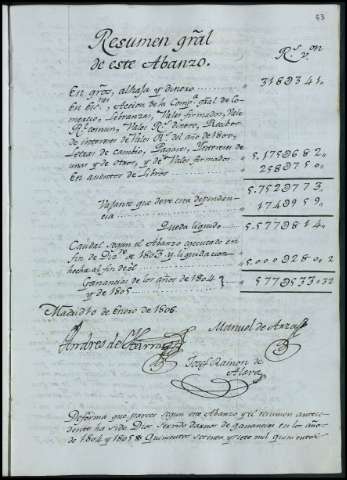 53
Resumen gral
de este Abanzo.
Rs. von
En gros, alhaja y dinero 318@341.
En Accion de la Compa. gral de Co-
mercio, Letranzas, Vales firmados, Vale
Rs. comun, Vales Rs. dinero, Recibos
de intereses de Vales Rs. del año de 1804,
Letras de cambio, Pagarés, Intereses de
unas y de otros, y de Vales firmados 5,,175@682.
En asientos de Libros 258@750.
5,,752@773,,
Vajante que deve esta dependen-
cia 174@959,,
Queda liquido 5,,577@814,,
Caudal segun el Abanzo executado en
fin de Dice. de 1803 y liquidacion
hecha al fin de él 5,,000@28
Ganancias de los años de 1804
y de 1805 577@533
Madrid 10 de Enero de 1806.
Andres de
Manuel de
Josef Ramon de
De forma que parece segun este Abanzo y el resumen antece-
dente ha sido Dios servido darnos de ganancias en los años
de 1804 y 1805 Quinientos setenta y siete mil quinientos